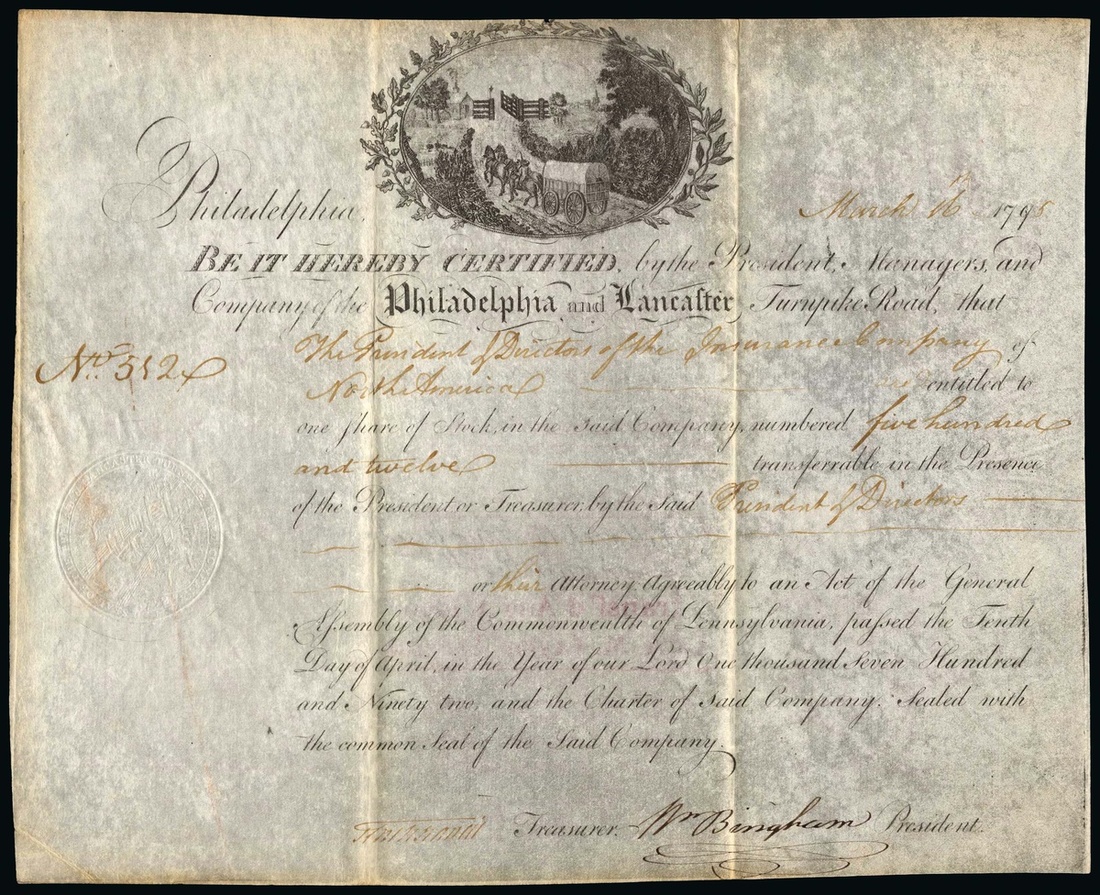 Philadelphia, March 16th 1795
BE IT HEREBY CERTIFIED, by the President, Managers, and
Company of the Philadelphia and Lancaster Turnpike Road, that
No. 512 The President & Directors of the Insurance Company of
North America entitled to
one Share of Stock, in the said Company, numbered five hundred
and twelve transferrable in the Presence
of the President or Treasurer, by the Said President & Directors
or their Attorney Agreeably to an Act of the General
Assembly of the Commonwealth of Pennsylvania, passed the Tenth
Day of April, in the Year of our Lord One thousand Seven Hundred
and Ninety two, and the Charter of said Company. Sealed with
the common Seal of the Said Company.
Treasurer. Wm Bingham President.